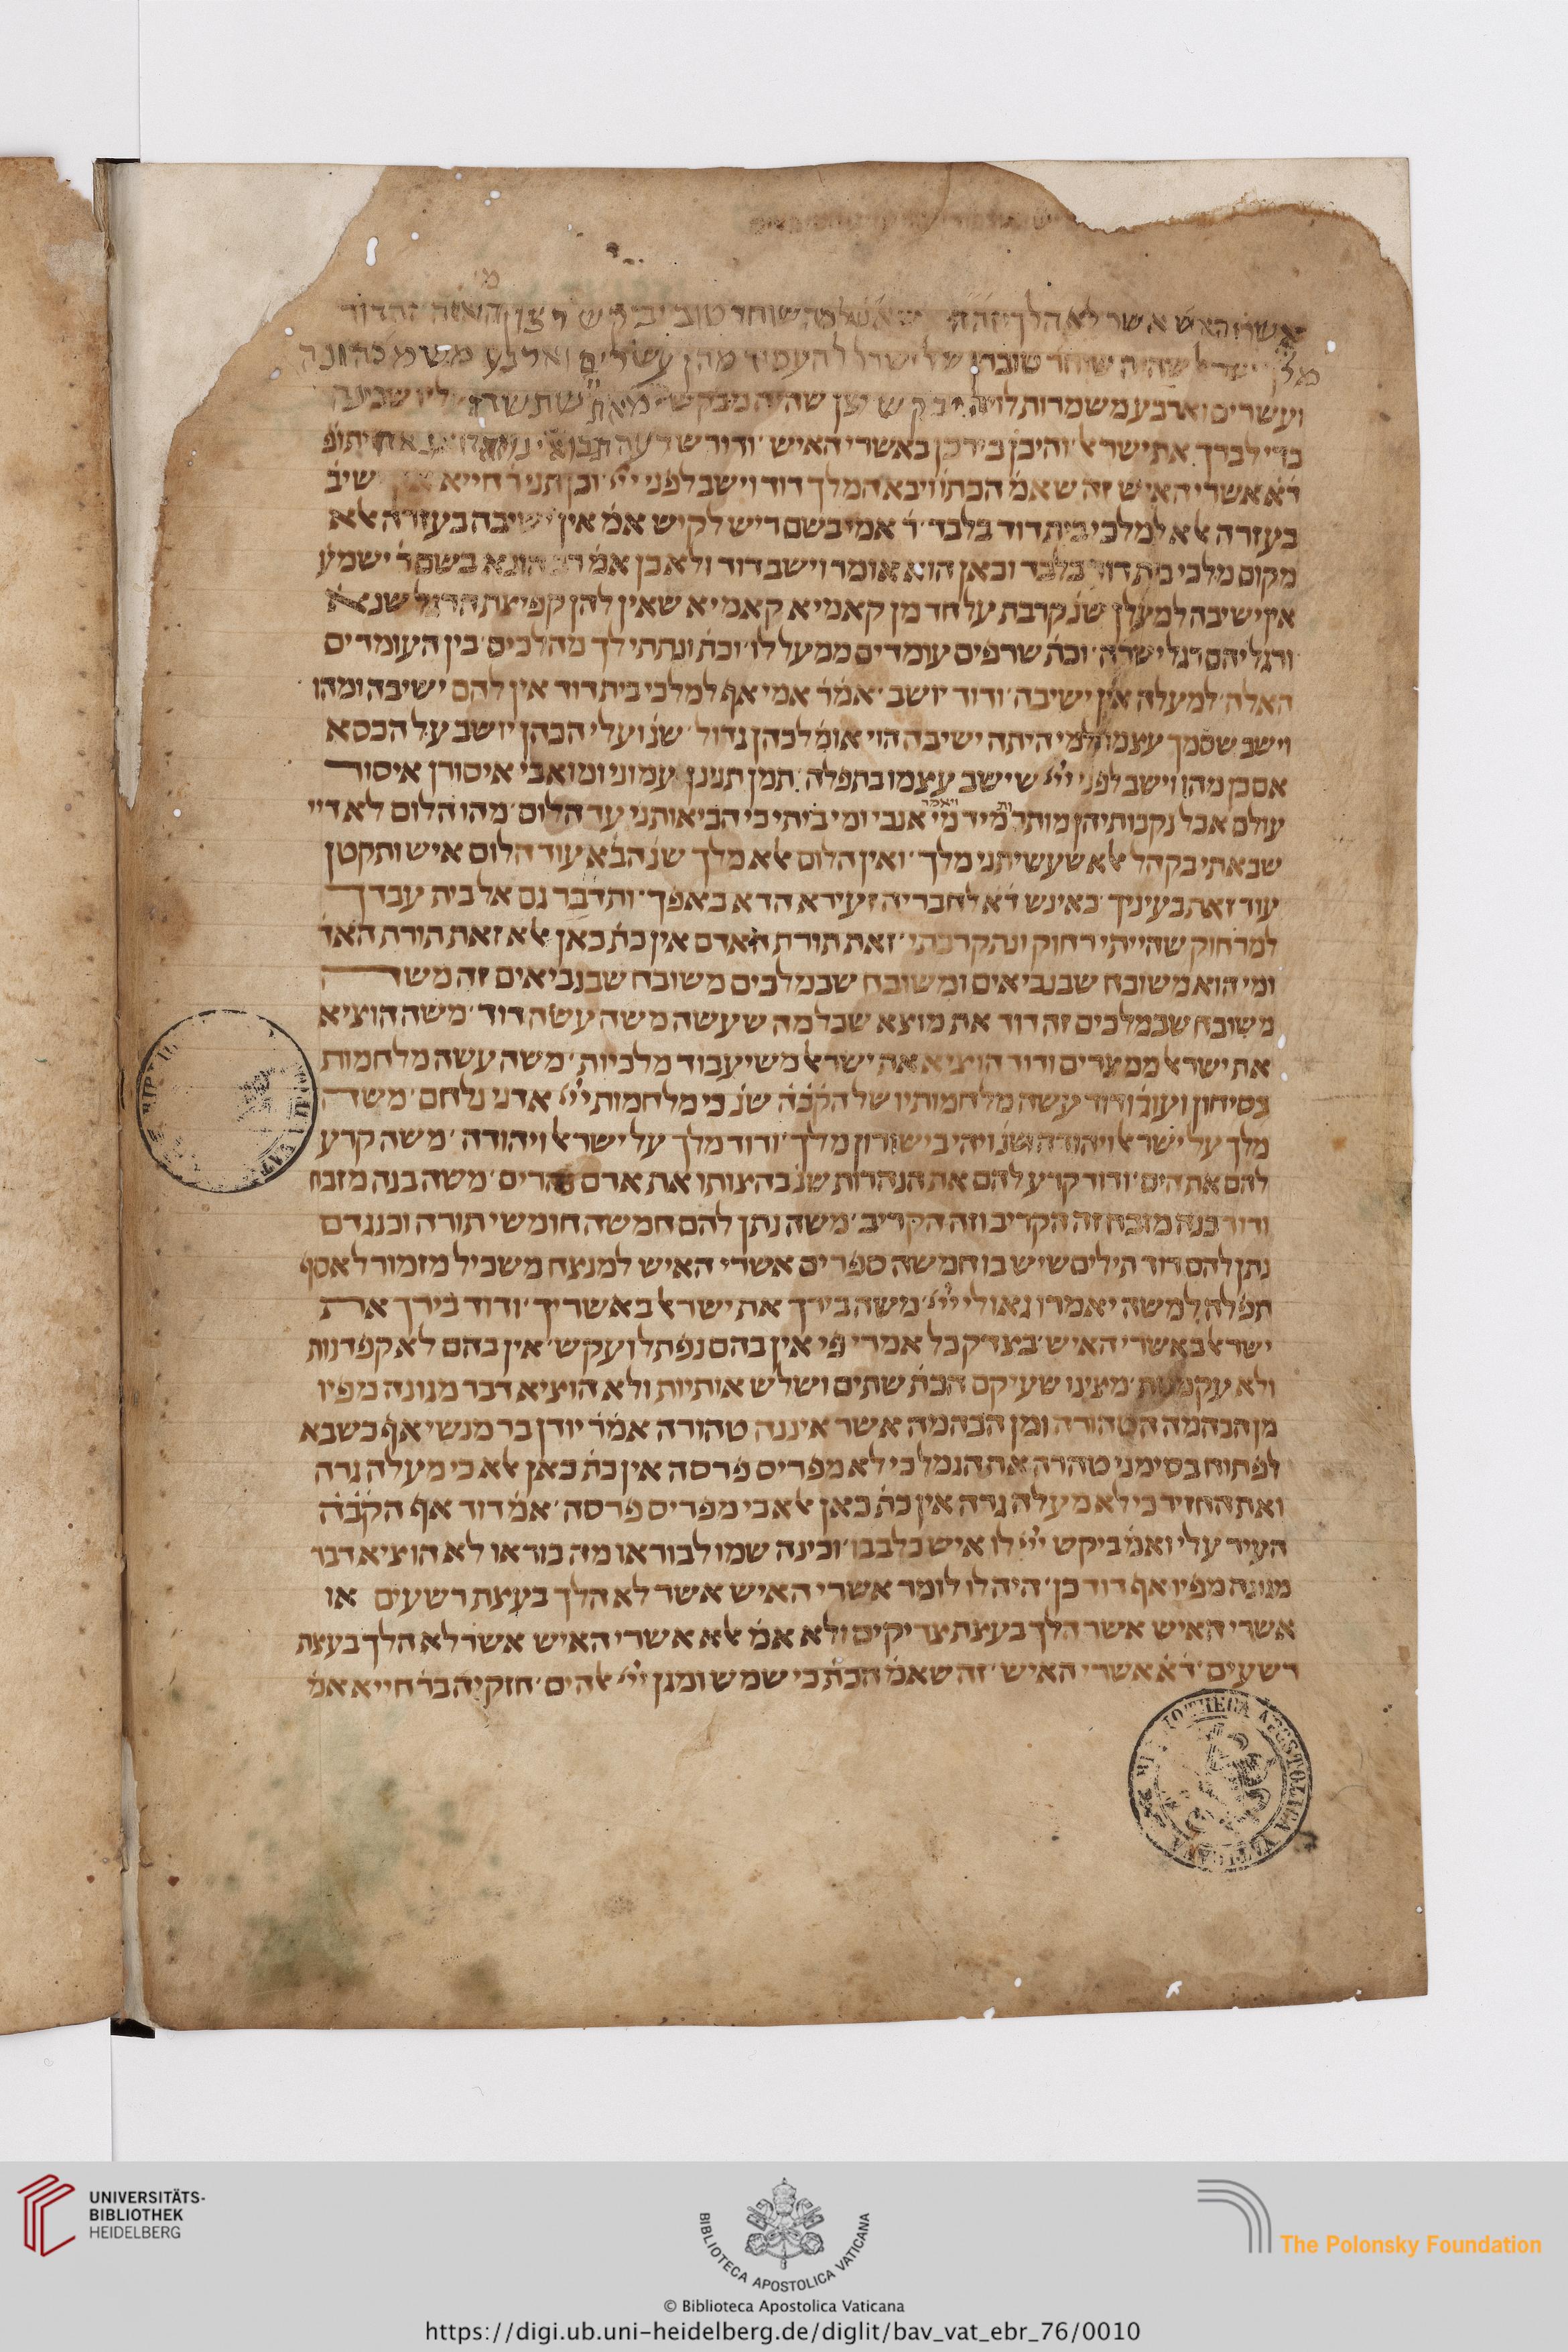 אשרי האיש אשר לא הלך זה שוחר טוב יבקש רצון
שוחר טוב של ישראל להעמיד מהן עשרים וארבע משמ כהונה
ועשרים וארבע משמרות לויה יבקש רצון שהיה מבקש
כדי לברך את ישראל והיכן בירכן באשרי האיש ודורש רעה תבואנו
ד׳א אשרי האיש זה שאמ׳ הכת׳ ויבא המלך דוד וישב לפני ייי וכן תני ר׳ חייא אין ישיב׳
בעזרה אלא למלכי בית דוד בלבד ר׳ אמי בשם ריש לקיש אמ׳ אין ישיבה בעזרה אלא
מקום מלכי בית דוד בלבד וכאן הוא אומר וישב דוד ולא כן אמ׳ רב הונא בשם ר׳ ישמע׳
אין ישיבה למעלן שנ׳ קרבת על חד מן קאמיא קאמיא שאין להן קפיצת הרגל שנא׳
ורגליהם רגל ישרה וכת׳ שרפים עומדים ממעל לו וכת׳ ונתתי לך מהלכים בין העומדים
האלה למעלה אין ישיבה ודוד יושב אמ׳ ר׳ אמי אף למלכי בית דוד אין להם ישיבה ומהו
וישב שסמך עצמו למי היתה ישיבה הוי אומ׳ לכהן גדול שנ׳ ועלי הכהן יושב על הכסא
אם כן מהו וישב לפני ייי שישב עצמו בתפלה תמן תנינן עמוני ומואבי איסורן איסור
עולם אבל נקבותיהן מותרות מיד ויאמר מי אנכי ומי ביתי כי הביאותני עד הלום מהו הלום לא דיי
שבאתי בקהל אלא שעשיתני מלך ואין הלום אלא מלך שנ׳ הבא עוד הלום איש ותקטן
עוד זאת בעיניך כאינש ד׳א לחבריה זעירא הדא באפך ותדבר גם אל בית עבדך
למרחוק שהייתי רחוק ונתקרבתי זאת תורת האדם אין כת׳ כאן אלא זאת תורת האד׳
ומי הוא משובח שבנביאים ומשובח שבמלכים משובח שבנביאים זה משה
משובח שבמלכים זה דוד את מוצא שכל מה שעשה משה עשה דוד משה הוציא
את ישראל ממצרים ודוד הוציא את ישראל משיעבוד מלכיות משה עשה מלחמות
בסיחון ועוג ודוד עשה מלחמותיו של הקב׳ה שנ׳ כי מלחמות ייי אדני נלחם משה
מלך על ישראל ויהודה שנ׳ ויהי בישורון מלך ודוד מלך על ישראל ויהודה משה קרע
להם את הים ודוד קרע להם את הנהרות שנ׳ בהצותו את ארם נהרים משה בנה מזבח
ודוד בנה מזבח זה הקריב וזה הקריב משה נתן להם חמשה חומשי תורה וכנגדם
נתן להם דוד תילים שיש בו חמשה ספרים אשרי האיש למנצח משכיל מזמור לאסף
תפלה למשה יאמרו גאולי ייי משה בירך את ישראל באשריך ודוד בירך את
ישראל באשרי האיש בצדק כל אמרי פי אין בהם נפתל ועקש אין בהם לא קפדנות
ולא עקמות מצינו שעיקם הכת׳ שתים ושלש אותיות ולא הוציא דבר מגונה מפיו
מן הבהמה הטהורה ומן הבהמה אשר איננה טהורה אמ׳ ר׳ יודן בר מנשי אף כשבא
לפתוח בסימני טהרה את הגמל כי לא מפריס פרסה אין כת׳ כאן אלא כי מעלה גרה
ואת החזיר כי לא מעלה גרה אין כת׳ כאן אלא כי מפריס פרסה אמ׳ דוד אף הקב׳ה
העיד עלי ואמ׳ ביקש ייי לו איש כלבבו וכינה שמו לבוראו מה בוראו לא הוציא דבר
מגונה מפיו אף דוד כן היה לו לומר אשרי האיש אשר לא הלך בעצת רשעים או
אשרי האיש אשר הלך בעצת צדיקים ולא אמ׳ אלא אשרי האיש אשר לא הלך בעצת
רשעים ד׳א אשרי האיש זה שאמ׳ הכת׳ כי שמש ומגן ייי אלהים חזקיה בר חייא אמ׳
BIBLIOTHECA APOSTOLICA VATICANA
UNIVERSITÄTS-
BIBLIOTHEK
HEIDELBERG
BIBLIOTECA APOSTOLICA VATICANA
The Polonsky Foundation
© Biblioteca Apostolica Vaticana
https://digi.ub.uni-heidelberg.de/diglit/bav_vat_ebr_76/0010